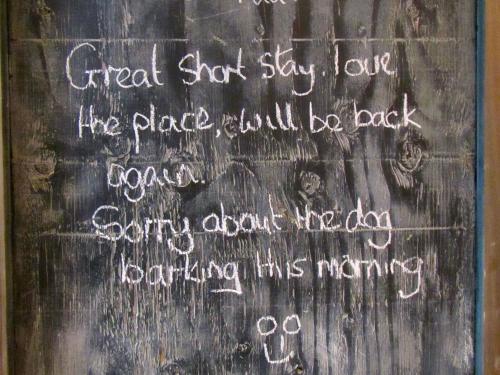 Great short stay. love
the place, will be back
again.
Sorry about the dog
barking this morning